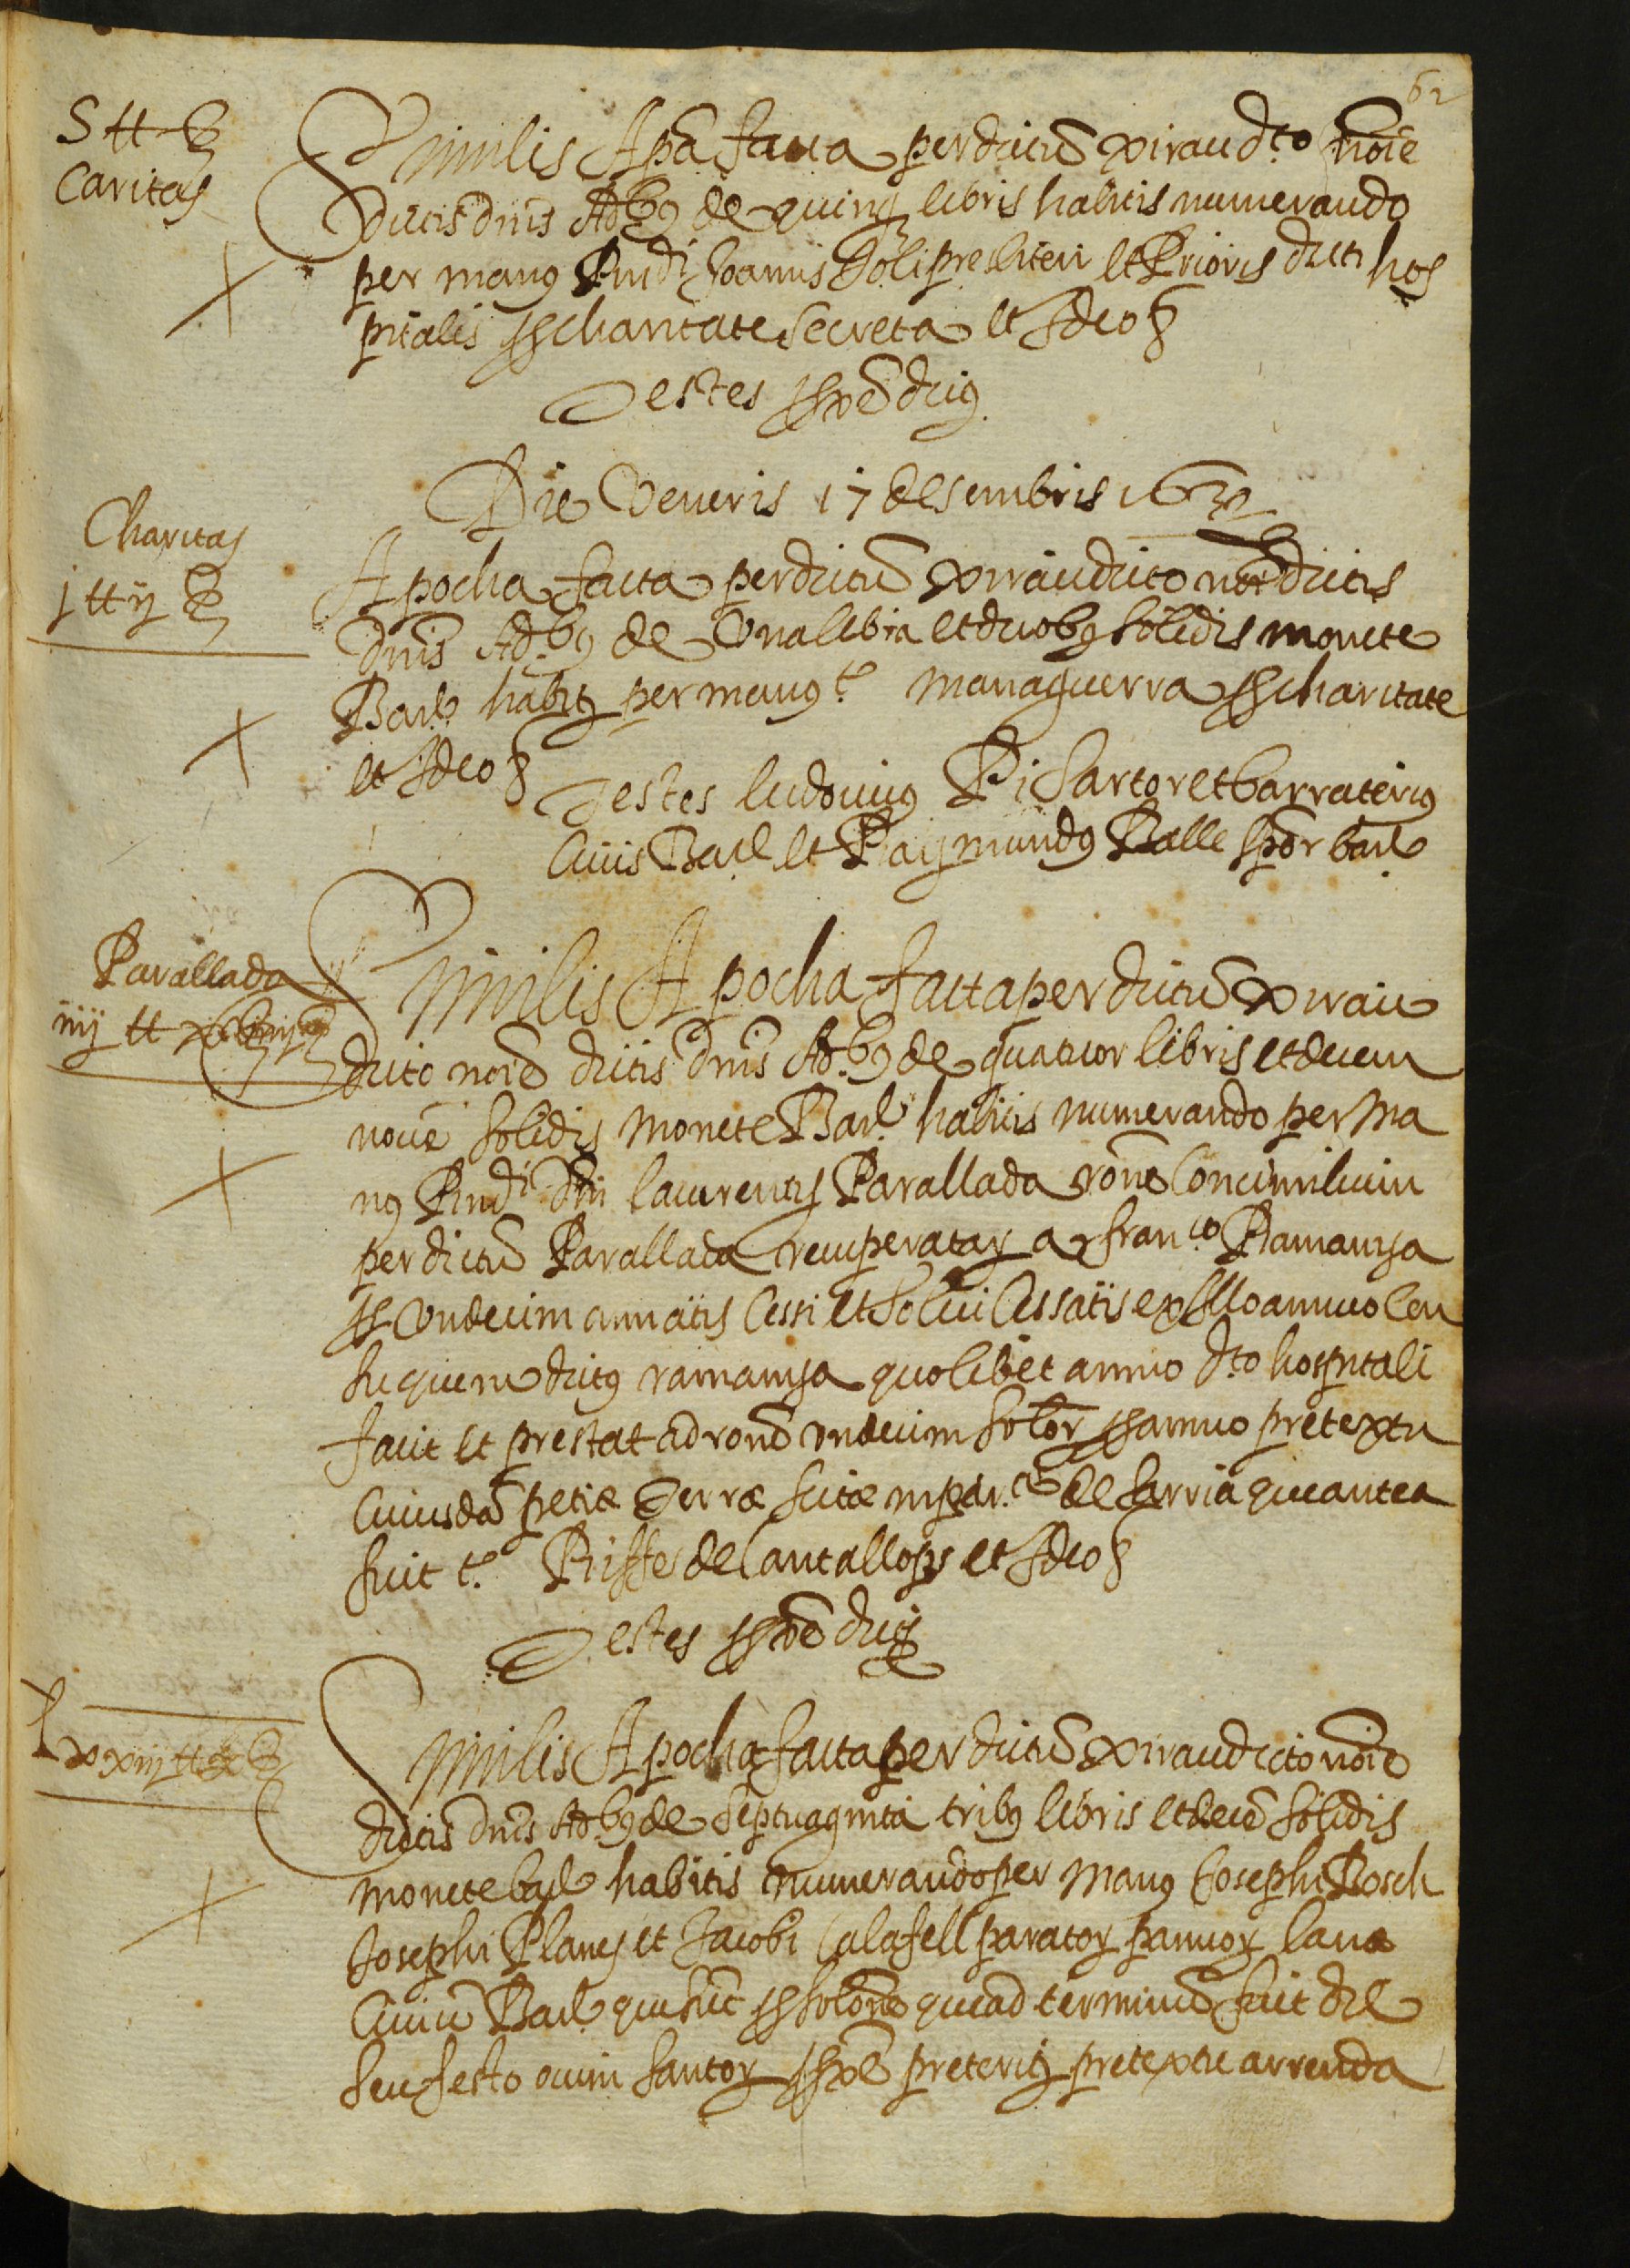 62
5 tt ß
Caritas
Similis Apâ facta per dictũ Xirau d.to noīe
dictis dnīs Ad.bꝰ de quinqꝫ libris habitis numerando
per manꝰ Rndi Joannis Soli presbiteri et Prioris dicti hos
pitalis charitate secreta et Ideo
Testes dictꝰ
Die Veneris 17 desembris 1632
Charitas
j tt ij ß
Apocha facta per dictũ Xirau dicto noīe dictis
dnīs Ad.bꝰ de Vna libra et duobꝰ solidis monete
Bar. habitꝭ per manꝰ t. Managuerra charitate
et Ideo
Testes ludovicꝰ Pi Sartor et barraterius
Civis Bar. et Raymundꝰ Balle bar.
Parallada
iiij tt
Similis Apocha facta per dictũ Xirau
dicto noīe dictis dnīs Ad.bꝰ de quatuor libris et decem
novē solidis monete Bar. habitis numerando per ma
nꝰ Rndi Dni laurentij Parallada
per dictũ Parallada recuperatas a fran.co Ramanya
Undecim annatis cessi et solui cessatis ex illo annuo cen
su quem dictꝰ ramanya quolibet anno d.to hospitali
facit et prestat ad ronē undecim annuo pretextu
Cuiusdã petiæ Terræ sitæ in de Sarria que antea
fuit t. Riffes de Cantallops et Ideo
Testes dicti
lxxiij tt x ß
Similis Apocha facta per dictũ Xirau dicto noīe
dictis dnīs Ad.bꝰ de septuaginta tribꝰ libris et decē solidis
monete bar. habitis numerando per manꝰ Josephi Bosch
Josephi Planes et Jacobi Calafell paratoꝝ pannoꝝ lanæ
Civiũ Bar. que ad terminũ fuit die
seu festo oĩm Santoꝝ preteritꝭ pretextu arrenda